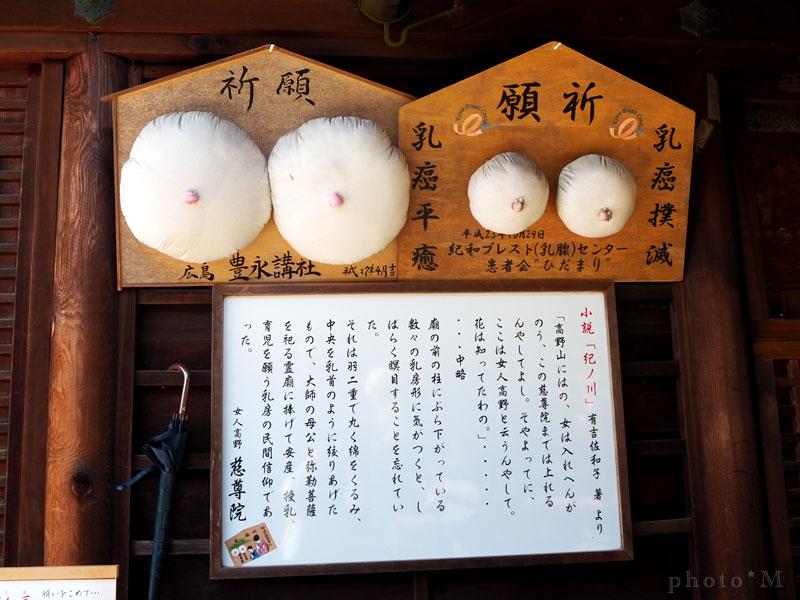 祈願
広島 豊永講社
平成27年4月吉
願祈
乳癌撲滅
乳癌平癒
平成23年10月29日
紀和ブレスト(乳腺)センター
患者会"ひだまり"
小説「紀ノ川」 有吉佐和子 著 より
「高野山にはの、女は入れへんが
のう、この慈尊院までは上れる
んやしてよし。そやよってに、
ここは女人高野と云うんやして。
花は知ってたわの。」・・・・・
・・・中略
廟の前の柱にぶら下がっている
数々の乳房形に気がつくと、し
ばらく瞑目することを忘れてい
た。
それは羽二重で丸く綿をくるみ、
中央を乳首のように絞りあげた
もので、大師の母公と弥勒菩薩
を祀る霊廟に捧げて安産、授乳、
育児を願う乳房の民間信仰であ
った。
女人高野 慈尊院
願いをこめて…
photo*M